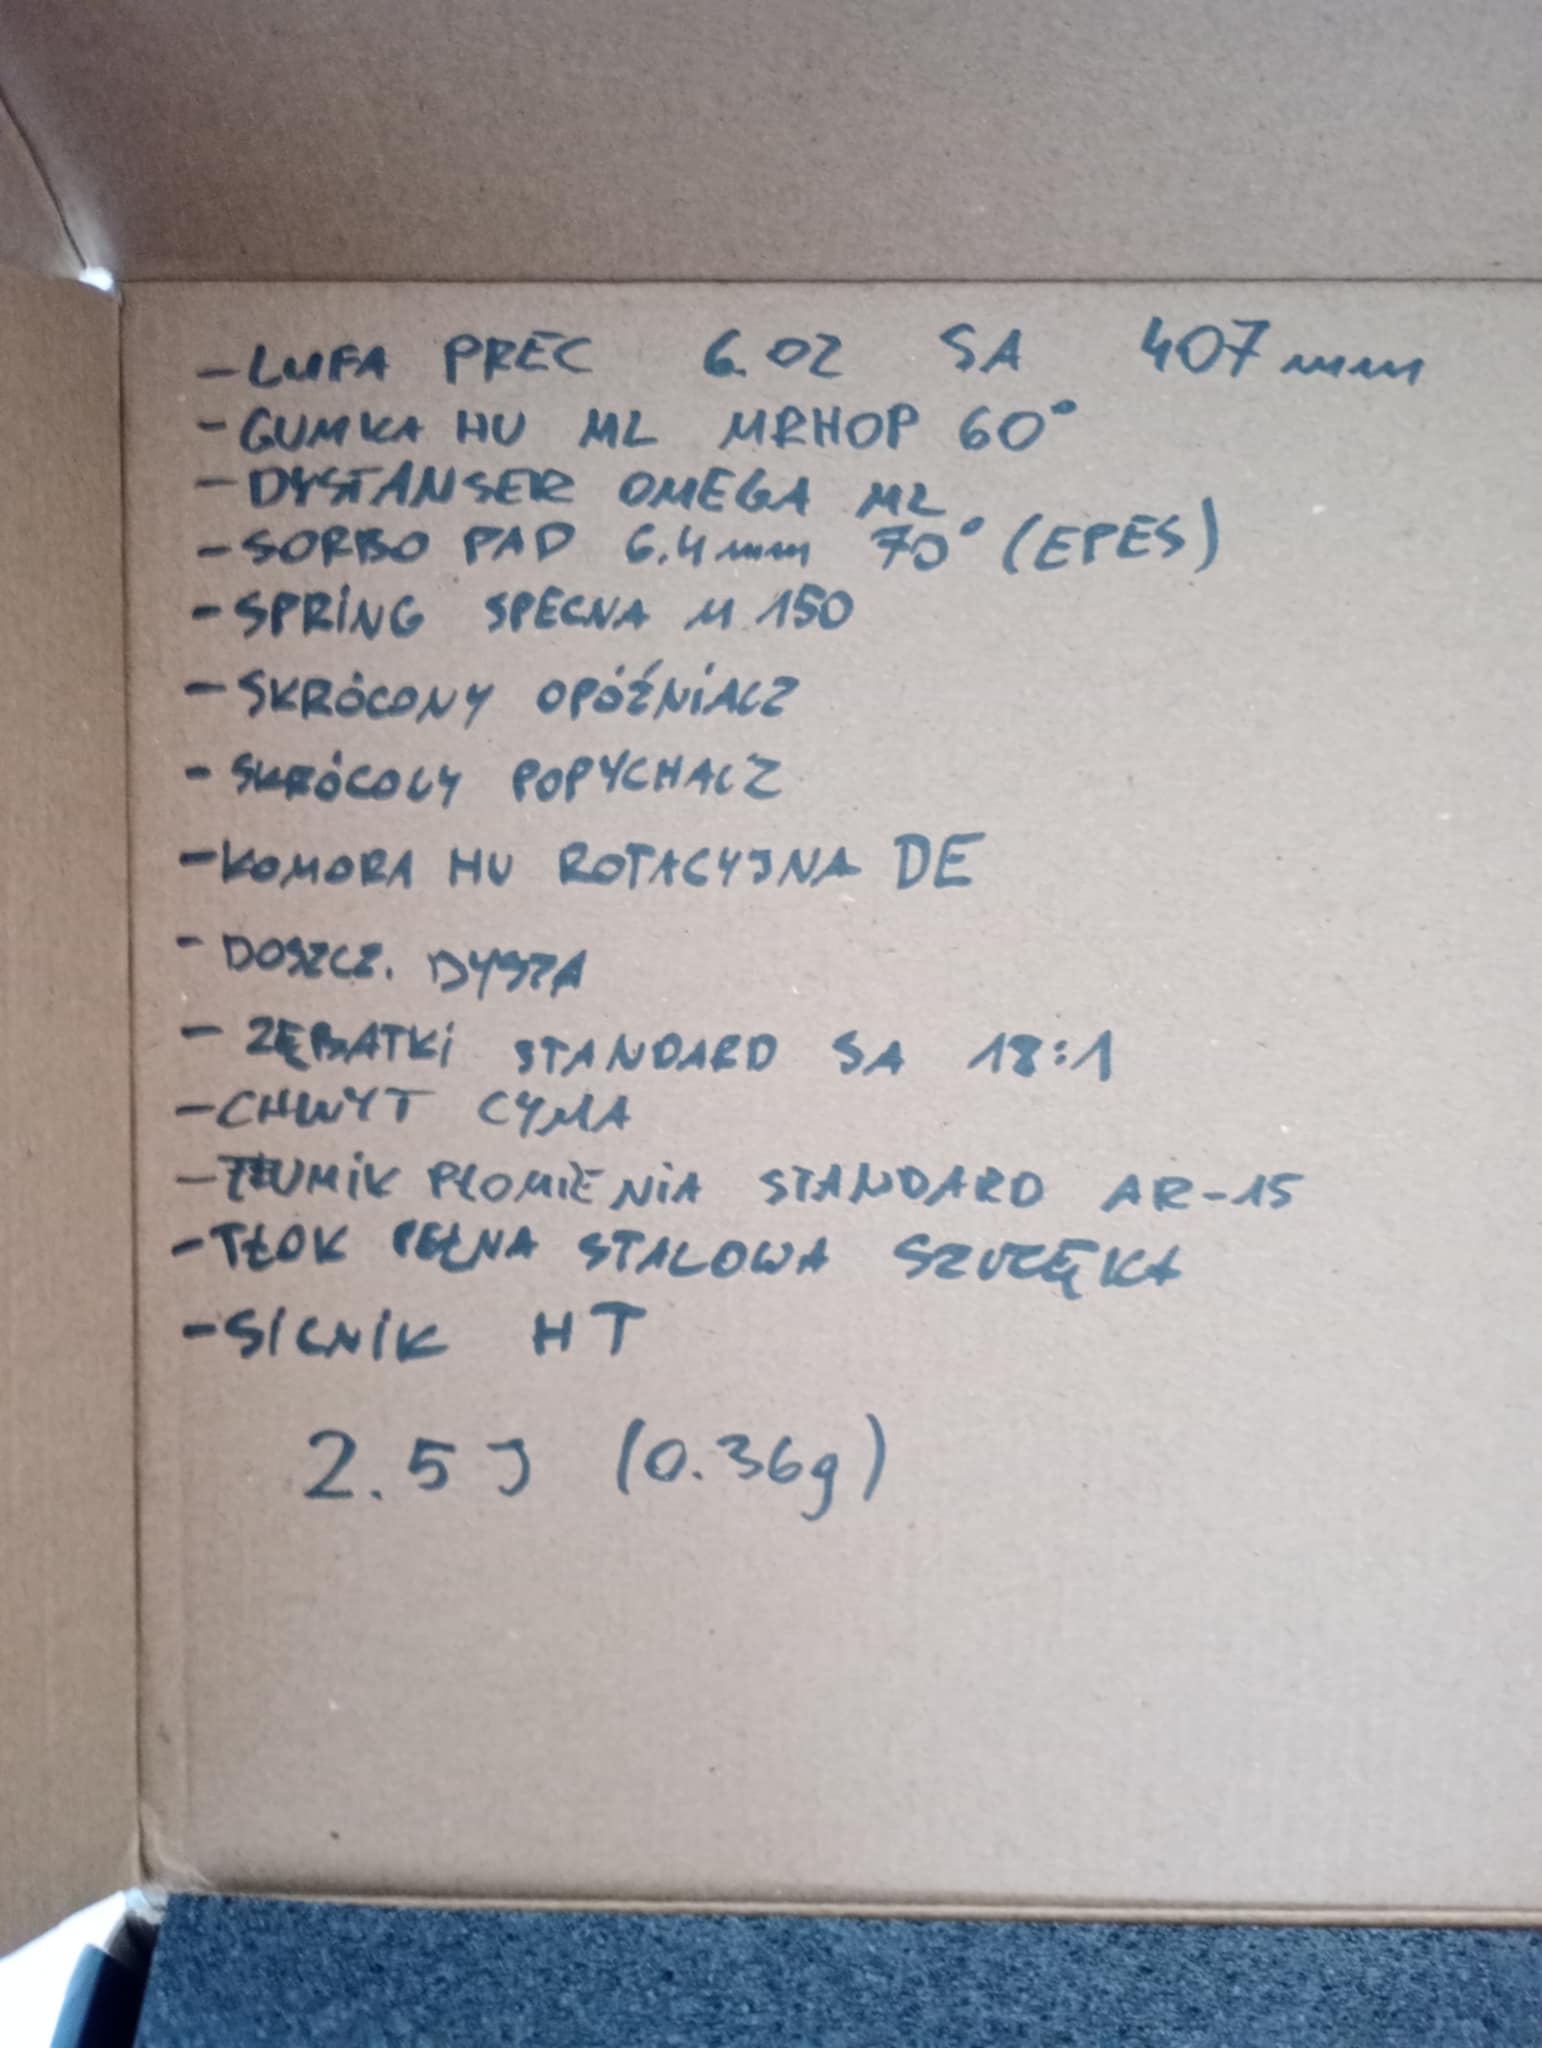 - LUFA PREC 6.02 SA 407 mm
- GUMKA HU ML MRHOP 60°
- DYSTANSER OMEGA ML
- SORBO PAD 6.4 mm 70° (EPES)
- SPRING SPECNA M 150
- SKRÓCONY OPÓŹNIACZ
- SKRÓCOLY POPYCHACZ
- KOMORA HU ROTACYJNA DE
- DOSZCZ. DYSZA
- ZĘBATKI STANDARD SA 18:1
- CHWYT CYMA
- TŁUMIK PŁOMIENIA STANDARD AR-15
- TŁOK PEŁNA STALOWA SZCZĘKA
- SILNIK HT
2.5 J (0.36g)